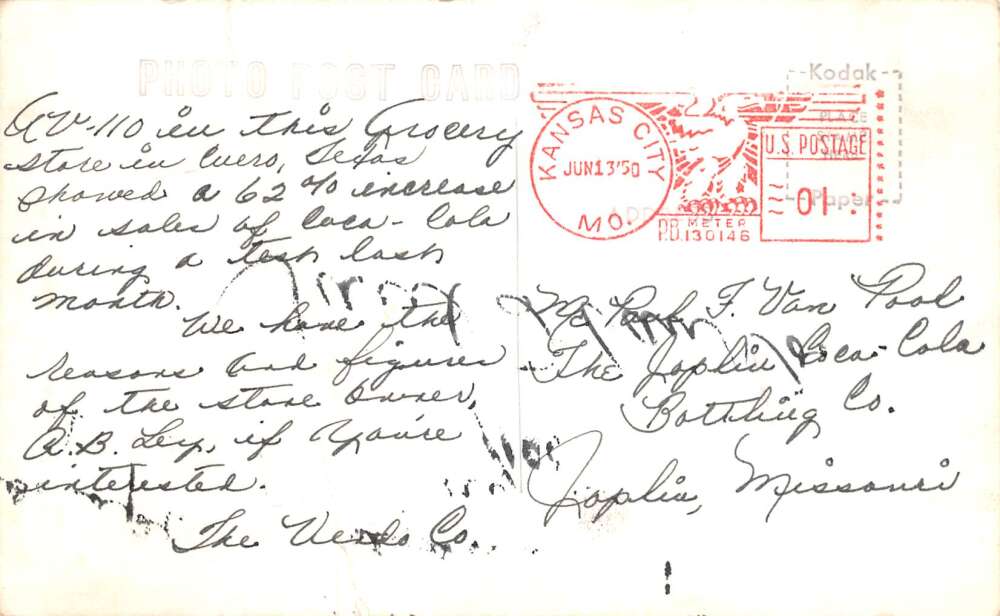 PHOTO POST CARD
AV-110 in this Grocery
store in Cuero, Texas
showed a 62% increase
in sales of Coca-Cola
during a test last
month.
We have the
reasons and figures
of the store owner,
A.B. Ley, if you're
interested.
The Vendo Co.
KANSAS CITY
JUN 13 '50
MO.
P.B. METER
P.B. 130146
U.S. POSTAGE
01
Kodak
PLACE
Paper
Mr. Paul F. Van Pool
The Joplin Coca-Cola
Bottling Co.
Joplin, Missouri